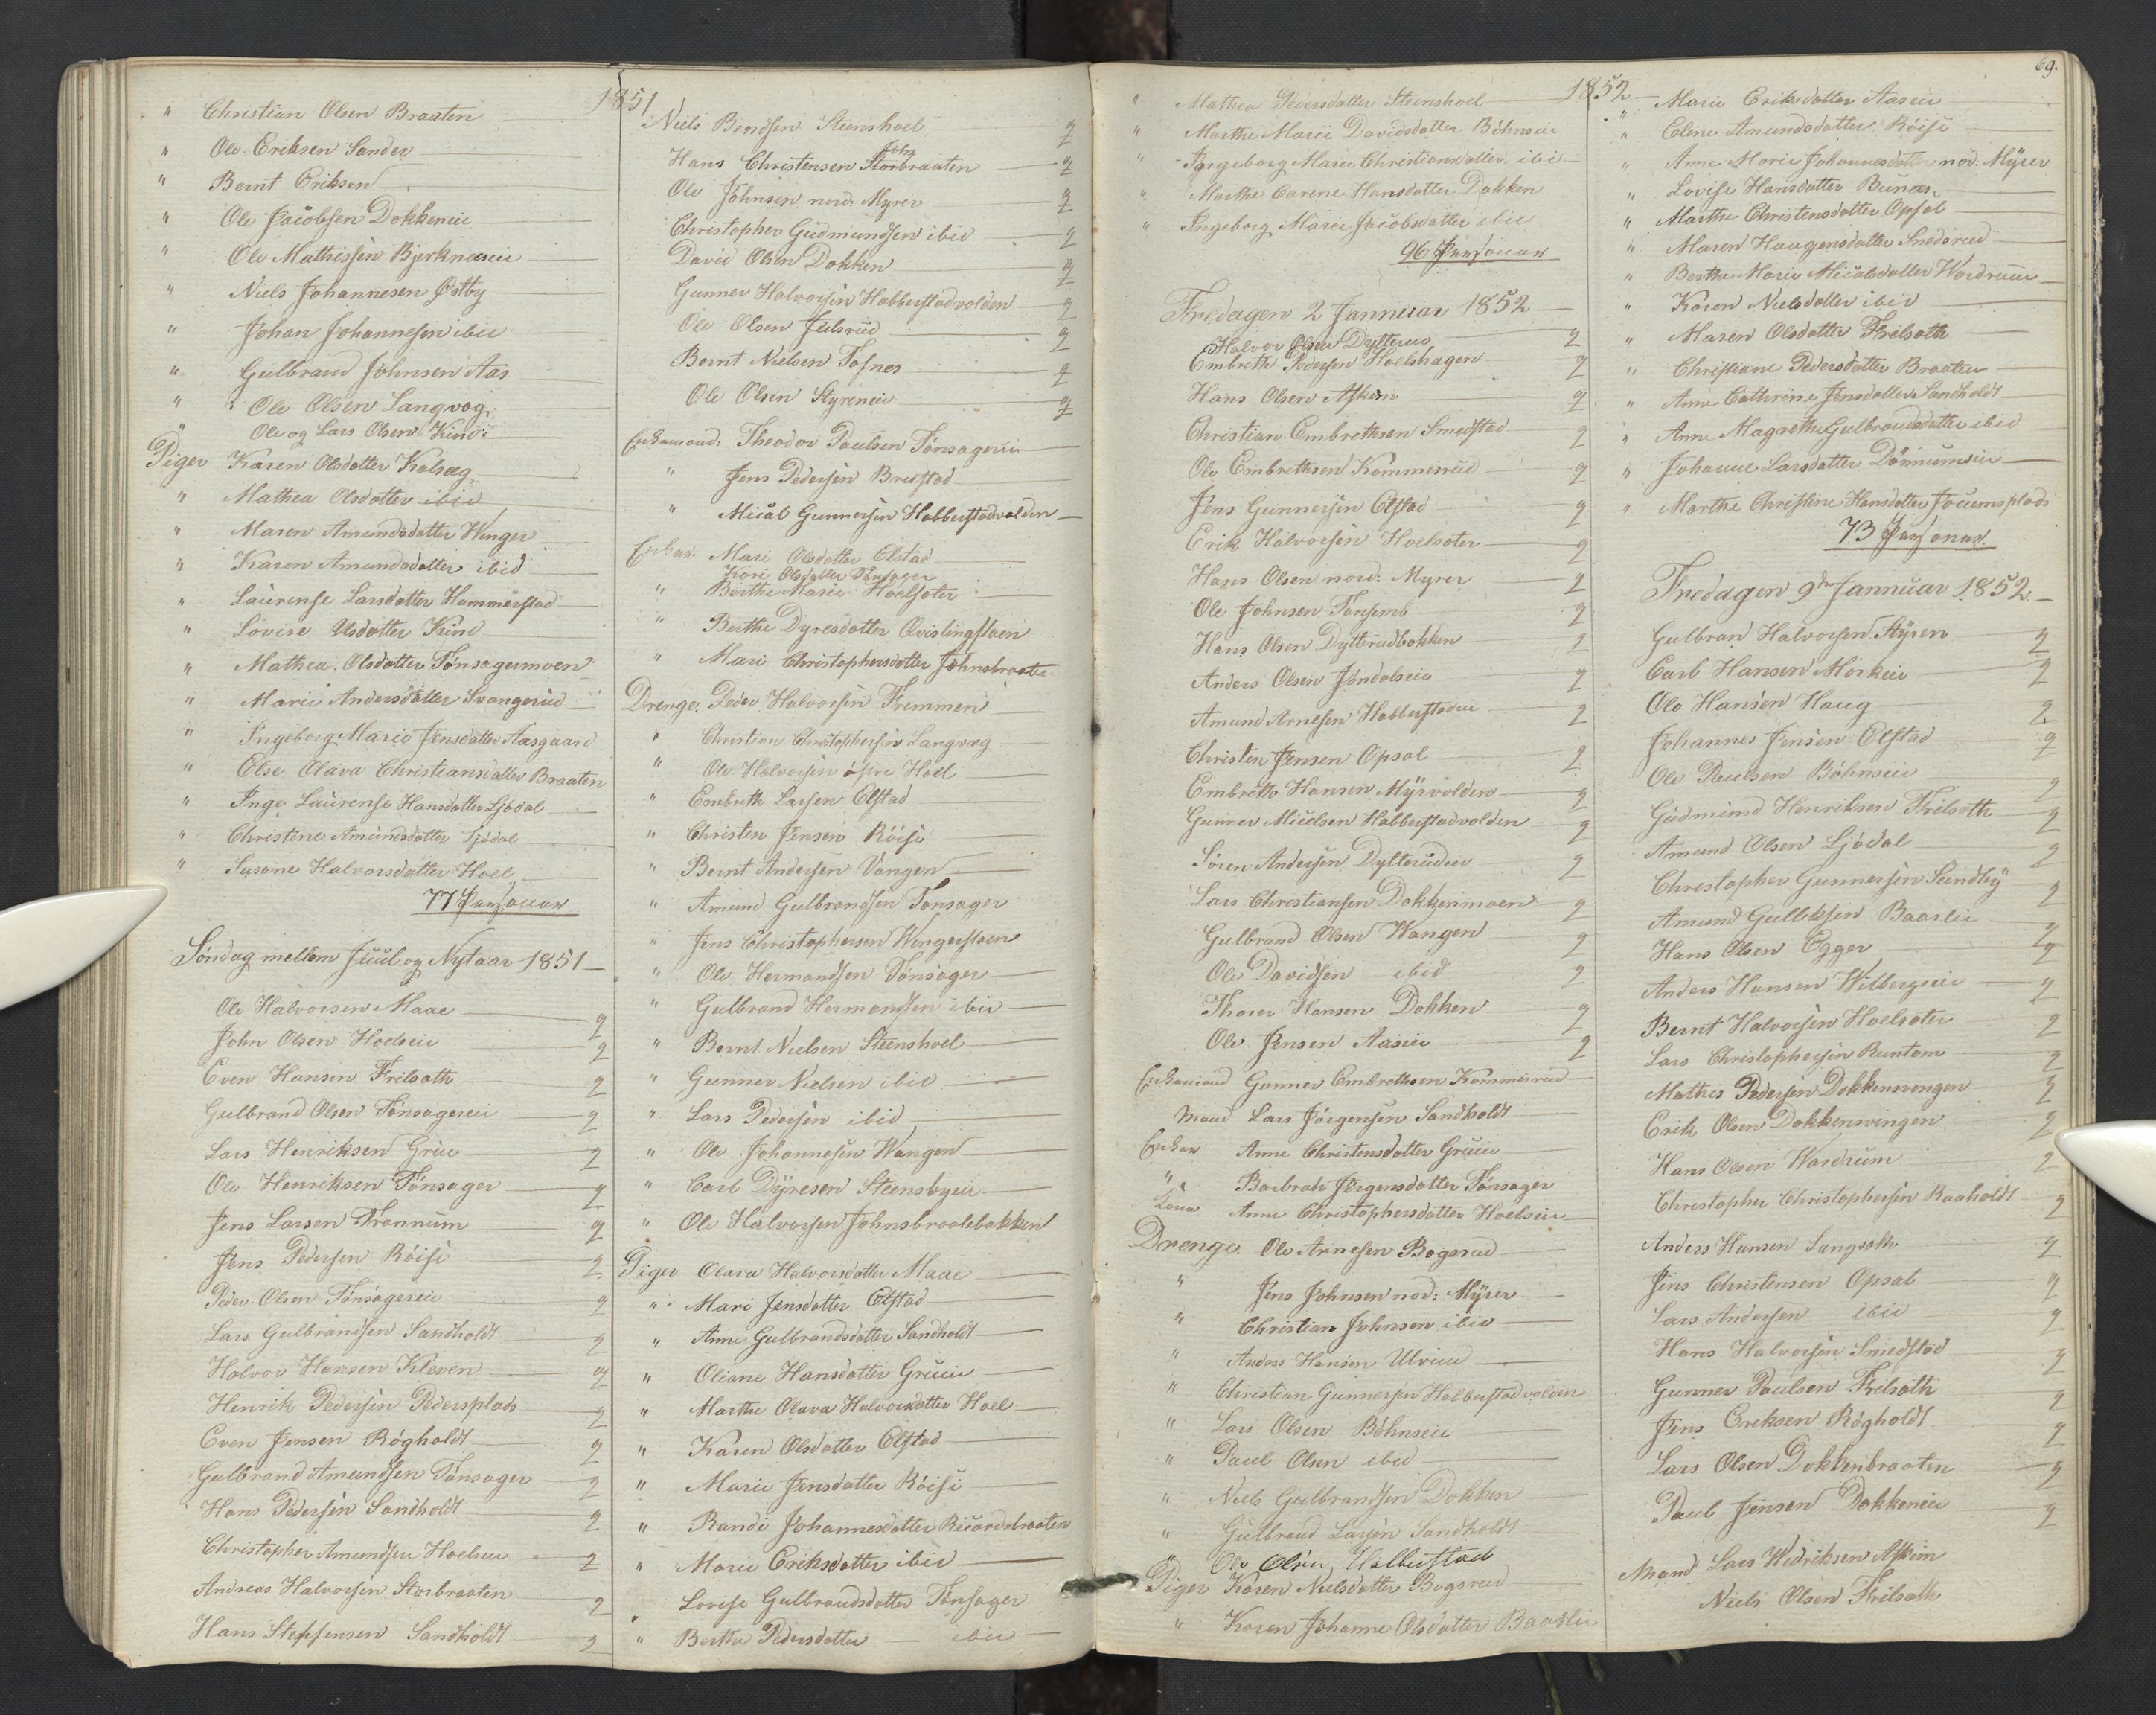 1851
" Christian Olsen Braaten
" Ole Eriksen Sander
" Bernt Eriksen
" Ole Jacobsen Dokkeneie
" Ole Mathissen Bjerknæseie
" Niels Johannesen Østby
" Johan Johannesen ibid
" Gulbrand Johnsen Aas
" Ole Olsen Langvæg
" Ole og Lars Olsen Kind
Piger Karen Olsdatter Kalsæg
" Mathea Olsdatter ibid
" Maren Amundsdatter Wenger
" Karen Amundsdatter ibid
" Laurense Larsdatter Hammerstad
" Lovise Olsdatter Kind
" Mathea Olsdatter Tønsagermoen
" Marie Andersdatter Svangerud
" Ingeborg Marie Jensdatter Aasgaard
" Else Olava Christiansdatter Braaten
" Inge Laurense Hansdatter Ljødal
" Christine Amundsdatter Ljødal
" Susane Halvorsdatter Hoel
77 Personer
Søndag mellem Juul og Nytaar 1851
Ole Halvorsen Maae 2
John Olsen Hoelseie 2
Even Hansen Frilsæth 2
Gulbrand Olsen Tønsagereie 2
Lars Henriksen Grue 2
Ole Henriksen Tønsager 2
Jens Larsen Trannum 2
Jens Pedersen Röise 2
Peder Olsen Tønsagereie 2
Lars Gulbrandsen Sandholdt 2
Halvor Hansen Kleven 2
Henrik Pedersen Pedersplads 2
Even Jensen Rögholdt 2
Gulbrand Amundsen Tønsager 2
Hans Pedersen Sandholdt 2
Christopher Amundsen Hoelseie 2
Andreas Halvorsen Storbraaten 2
Hans Steffensen Sandholdt 2
Niels Bendsen Steenshoel 2
Hans Christensen Storbraaten 2
Ole Johnsen nord: Myrer 2
Christopher Gudmundsen ibid 2
David Olsen Dokken 2
Gunner Halvorsen Habberstadvolden 2
Ole Olsen Julsrud 2
Bernt Nielsen Tofnes 2
Ole Olsen Styreneie 2
Enkemand: Theodor Paulsen Tønsagereie
" Jens Pedersen Breistad
" Micael Gunnersen Habberstadvolden
Enker. Mari Olsdatter Elstad
Kari Olsdatter Tønsager
" Berthe Marie Hoelsæter
" Berthe Dyresdatter Qvislingfloen
" Mari Christophersdatter Johnsbraaten
Drenge. Peder Halvorsen Fremmen
" Christian Christophersen Langvæg
" Ole Halvorsen øvre Hoel
" Embreth Larsen Elstad
" Christen Jensen Röise
" Bernt Andersen Vangen
" Amund Gulbrandsen Tønsager
" Jens Christophersen Wengerfloen
" Ole Hermandsen Tønsager
" Gulbrand Hermandsen ibid
" Bernt Nielsen Steenshoel
" Gunner Nielsen ibid
" Lars Pedersen ibid
" Ole Johannesen Wangen
" Carl Dyresen Steensbyeie
" Ole Halvorsen Johnsbraatebakken
Piger Olava Halvorsdatter Maae
" Mari Jensdatter Elstad
" Anne Gulbrandsdatter Sandholdt
" Oliane Hansdatter Grueie
" Marthe Olava Halvorsdatter Hoel
" Karen Olsdatter Elstad
" Marie Jensdatter Röise
" Randi Johannesdatter Ricardsbraaten
" Marie Eriksdatter ibid
" Lovise Gulbrandsdatter Tønsager
" Berthe Pedersdatter ibid
1852
69.
" Mathea Pedersdatter Steenshoel
" Marthe Marie Davidsdatter Böhnseie
" Ingeborg Marie Christiansdatter ibi
" Marthe Carene Hansdatter Dokken
" Ingeborg Marie Jacobsdatter ibid
96 Personer
Fredagen 2 Jannuar 1852
Halvor Olsen Dytterud 2
Embreth Pedersen Hoelshagen 2
Hans Olsen Askim 2
Christian Embrethsen Smedstad 2
Ole Embrethsen Kommisrud 2
Jens Gunnersen Elstad 2
Erik Halvorsen Hoelsæter 2
Hans Olsen nord: Myrer 2
Ole Johnsen Tønsemb 2
Hans Olsen Dytterudbakken 2
Anders Olsen Jøndalseie 2
Amund Arnesen Habberstadeie 2
Christen Jensen Opsal 2
Embreth Hansen Myrvolden 2
Gunner Micelsen Habberstadvolden 2
Søren Andersen Dytterudeie 2
Lars Christiansen Dokkenmoen 2
Gulbrand Olsen Wangen 2
Ole Davidsen ibid 2
Thorer Hansen Dokken 2
Ole Jensen Aaseie 2
Enkemand Gunner Embrethsen Kommisrud
Mand Lars Jörgensen Sandholdt
Enker Anne Christensdatter Grueie
" Barbrah Jörgensdatter Tønsager
Kone Anne Christophersdatter Hoelseie
Drenge. Ole Arnesen Bogerud
" Jens Johnsen nod: Myrer
" Christian Johnsen ibid
" Anders Hansen Ulvieie
" Christian Gunnersen Habberstadvolden
" Lars Olsen Böhnseie
" Paul Olsen ibid
" Niels Gulbrandsen Dokken
" Gulbrand Larsen Sandholdt
" Ole Olsen Habberstad
Piger Karen Nielsdatter Bogerud
" Karen Johanne Olsdatter Baaslie
" Marie Eriksdatter Aaseie
" Eline Amundsdatter Röise
" Anne Marie Johannesdatter nod: Myrer
" Lovise Hansdatter Bunæs
" Marthe Christensdatter Opsal
" Maren Haagensdatter Snedsrud
" Berthe Marie Micalsdatter Wordrum
" Karen Nielsdatter ibid
" Maren Olsdatter Frilsæth
" Christiane Pedersdatter Braaten
" Anne Cathrine Jensdatter Sandholdt
" Anne Magrethe Gulbrandsdatter ibid
" Johanne Larsdatter Dönnumseie
" Marthe Christine Hansdatter Joeumsplads
73 Personer
Fredagen 9de Jannuar 1852.
Gulbran Halvorsen Styren 2
Carl Hansen Mørkeie 2
Ole Hansen Haug 2
Johannes Jensen Elstad 2
Ole Paulsen Böhnseie 2
Gudmund Henriksen Frilsæth 2
Amund Olsen Ljødal 2
Christopher Gunnersen Sundby 2
Amund Gulliksen Baarlie 2
Hans Olsen Egger 2
Anders Hansen Wilbergeie 2
Bernt Halvorsen Hoelsæter 2
Lars Christophersen Runtom 2
Mathis Pedersen Dokkensvengen 2
Erik Olsen Dokkensvingen 2
Hans Olsen Wordrum 2
Christopher Christophersen Raaholdt 2
Anders Hansen Langsæth 2
Jens Christensen Opsal 2
Lars Andersen ibid 2
Hans Halvorsen Smedstad 2
Gunner Paulsen Frilsæth 2
Jens Ereksen Rögholdt 2
Lars Olsen Dokkenbraaten 2
Paul Jensen Dokkeneie 2
Mand Lars Hedriksen Askim
Niels Olsen Frilsæth